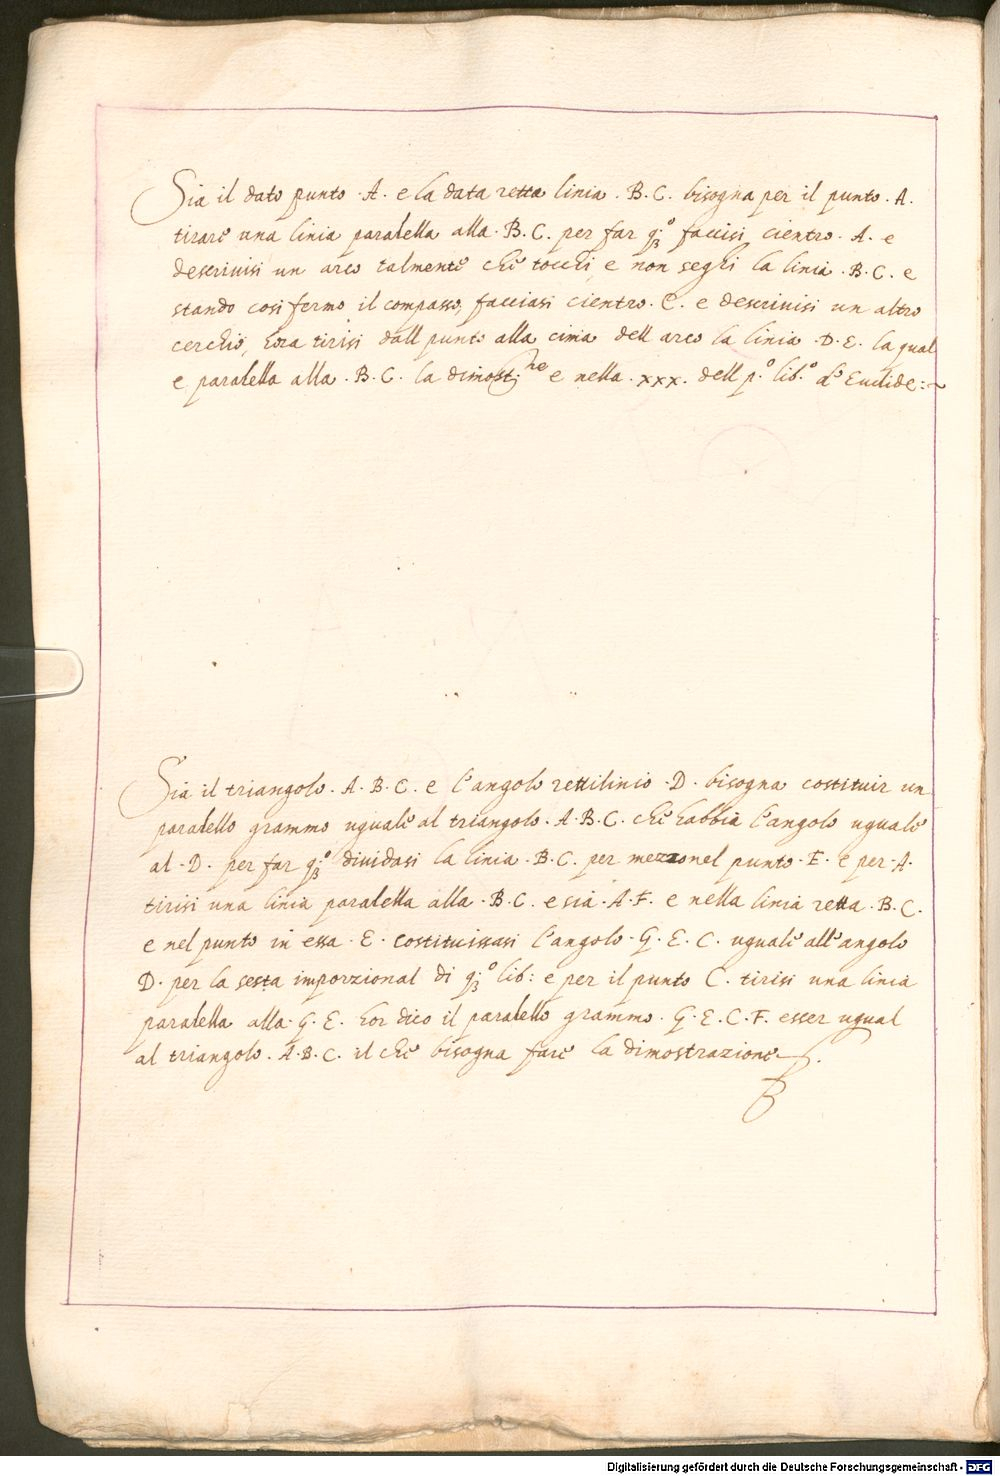 Sia il dato punto · A · e la data retta linia · B · C · bisogna per il punto · A ·
tirare una linia paralella alla · B · C · per far q̃sto faccisi cientro · A · e
descriuisi un arco talmente che tocchi e non seghi la linia · B · C · e
stando cosi fermo il compasso, facciasi cientro · C · e descriuisi un altro
cerchio, hora tirisi dall punto alla cima dell arco la linia · D · E · la qual
e paralella alla · B · C · la dimost:ne e nella · xxx · dell p.º lib.º de Euclide :~
Sia il triangolo · A · B · C · e l'angolo rettilinio · D · bisogna costituir un
paralello grammo uguale al triangolo · A · B · C · che habbia l'angolo uguale
al · D · per far q̃sto diuidasi la linia · B · C · per mezzo nel punto · E · e per · A ·
tirisi una linia paralella alla · B · C · e sia · A · F · e nella linia retta · B · C ·
e nel punto in essa · E · costituissasi l'angolo · G · E · C · uguale all'angolo
D · per la sesta imporzional di q̃sto lib: e per il punto C · tirisi una linia
paralella alla · G · E · hor dico il paralello grammo · G · E · C · F · esser ugual
al triangolo · A · B · C · il che bisogna fare la dimostrazione
Digitalisierung gefördert durch die Deutsche Forschungsgemeinschaft - DFG